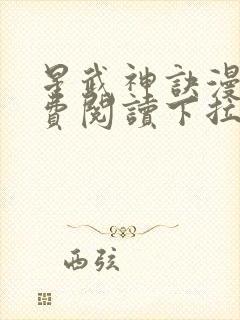 星武神訣漫
費閱讀下拉
西弦